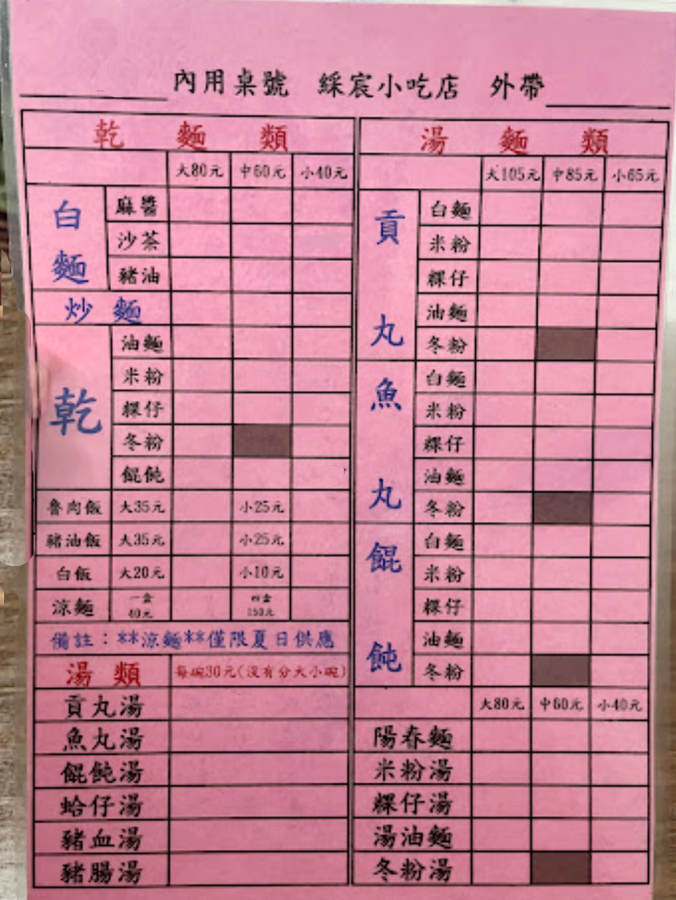 內用桌號 綵宸小吃店 外帶
乾麵類
大80元 中60元 小40元
白麵
麻醬
沙茶
豬油
炒麵
乾
油麵
米粉
粿仔
冬粉
餛飩
魯肉飯 大35元 小25元
豬油飯 大35元 小25元
白飯 大20元 小10元
涼麵 一盒40元 四盒150元
備註：**涼麵**僅限夏日供應
湯類 每碗30元(沒有分大小碗)
貢丸湯
魚丸湯
餛飩湯
蛤仔湯
豬血湯
豬腸湯
湯麵類
大105元 中85元 小65元
貢丸
白麵
米粉
粿仔
油麵
冬粉
魚丸
白麵
米粉
粿仔
油麵
冬粉
餛飩
白麵
米粉
粿仔
油麵
冬粉
大80元 中60元 小40元
陽春麵
米粉湯
粿仔湯
湯油麵
冬粉湯